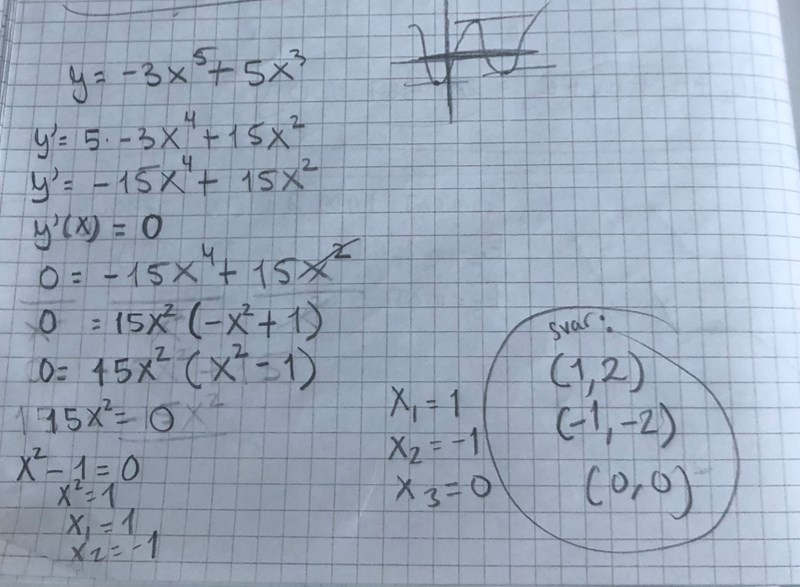 y = -3x⁵ + 5x³
y' = 5 · -3x⁴ + 15x²
y' = -15x⁴ + 15x²
y'(x) = 0
0 = -15x⁴ + 15x²
0 = 15x² (-x² + 1)
0 = 15x² (x² - 1)
15x² = 0
x² - 1 = 0
x² = 1
x₁ = 1
x₂ = -1
x₁ = 1
x₂ = -1
x₃ = 0
svar:
(1, 2)
(-1, -2)
(0, 0)